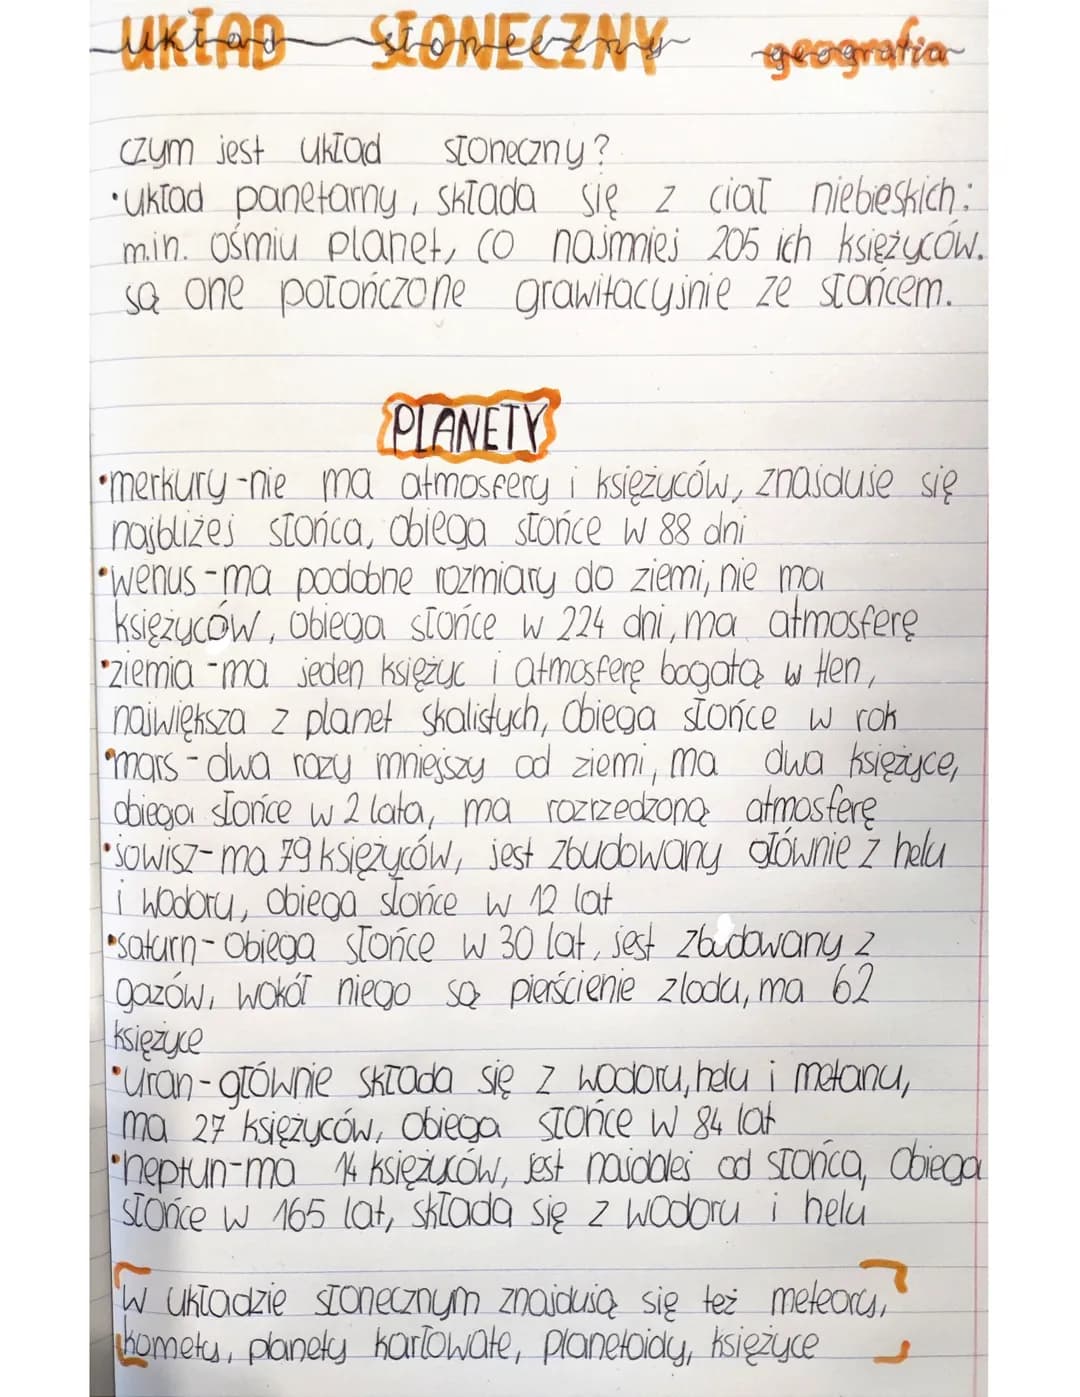 UKŁAD SŁONECZNY geografia
układ słoneczny
czym jest układ słoneczny?
•układ panetarny, składa się z ciał niebieskich:
m.in. ośmiu planet, co najmniej 205 ich księżyców.
są one połończone grawitacyjnie ze słońcem.
PLANETY
•merkury-nie ma atmosfery i księżyców, znajduje się
najbliżej słońca, obiega słońce w 88 dni
•wenus-ma podobne rozmiary do ziemi, nie ma
księżyców, obiega słońce w 224 dni, ma atmosferę
•ziemia-ma jeden księżyc i atmosferę bogatą w tlen,
największa z planet skalistych, obiega słońce w rok
•mars-dwa razy mniejszy od ziemi, ma dwa księżyce,
obiega słońce w 2 lata, ma rozrzedzoną atmosferę
•jowisz-ma 79 księżyców, jest zbudowany głównie z helu
i wodoru, obiega słońce w 12 lat
•saturn-obiega słońce w 30 lat, jest zbudowany z
gazów, wokół niego są pierścienie zlodu, ma 62
księżyce
•uran-głównie składa się z wodoru, helu i metanu,
ma 27 księżyców, obiega słońce w 84 lat
•neptun-ma 14 księżyców, jest najdalej od słońca, obiega
słońce w 165 lat, składa się z wodoru i helu
W układzie słonecznym znajdują się też meteory,
komety, planety karłowate, planetoidy, księżyce